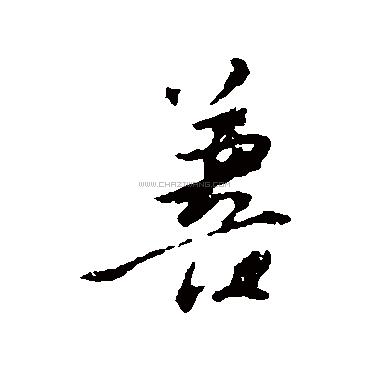 善
WWW.CHAZIWANG.COM